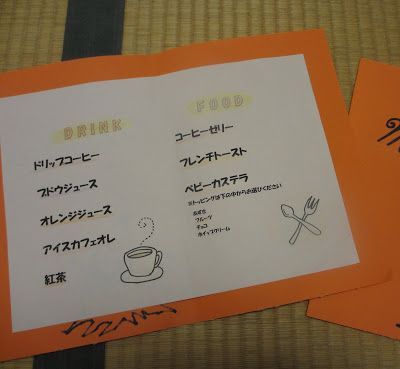 DRINK
ドリップコーヒー
ブドウジュース
オレンジジュース
アイスカフェオレ
紅茶
FOOD
コーヒーゼリー
フレンチトースト
ベビーカステラ
※トッピングは下の中からお選びください
フルーツ
チョコ
ホイップクリーム